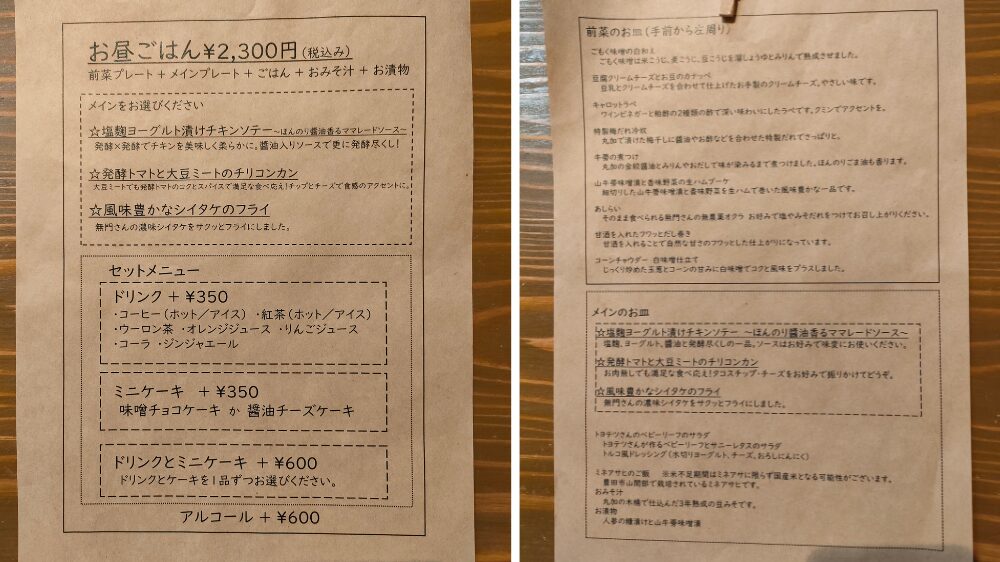 お昼ごはん¥2,300円(税込み)
前菜プレート＋メインプレート＋ごはん＋おみそ汁＋お漬物
メインをお選びください
☆塩麹ヨーグルト漬けチキンソテー～ほんのり醬油香るママレードソース～
発酵×発酵でチキンを美味しく柔らかに。醬油入りソースで更に発酵尽くし!
☆発酵トマトと大豆ミートのチリコンカン
大豆ミートでも発酵トマトのコクとスパイスで満足な食べ応え!チップとチーズで食感のアクセントに。
☆風味豊かなシイタケのフライ
無門さんの濃味シイタケをサクッとフライにしました。
セットメニュー
ドリンク ＋ ¥350
・コーヒー(ホット／アイス) ・紅茶(ホット／アイス)
・ウーロン茶 ・オレンジジュース ・りんごジュース
・コーラ ・ジンジャエール
ミニケーキ ＋ ¥350
味噌チョコケーキ か 醬油チーズケーキ
ドリンクとミニケーキ ＋ ¥600
ドリンクとケーキを1品ずつお選びください。
アルコール ＋ ¥600
前菜のお皿(手前から左周り)
ごもく味噌の白和え
ごもく味噌は米こうじ、麦こうじ、豆こうじを溜しょうゆとみりんで熟成させました。
豆腐クリームチーズとお豆のカナッペ
豆乳とクリームチーズを合わせて仕上げたお手製のクリームチーズ。やさしい味です。
キャロットラペ
ワインビネガーと粕酢の2種類の酢で深い味わいにしたラペです。クミンでアクセントを。
特製梅だれ冷奴
丸加で漬けた梅干しに醬油やお酢などを合わせた特製だれでさっぱりと。
牛蒡の煮つけ
丸加の金鮫醬油とみりんやおだしで味が染みるまで煮つけました。ほんのりごま油も香ります。
山牛蒡味噌漬と香味野菜の生ハムブーケ
細切りした山牛蒡味噌漬と香味野菜を生ハムで巻いた風味豊かな一品です。
あしらい
そのまま食べられる無門さんの無農薬オクラ お好みで塩やみそだれをつけてお召し上がりください。
甘酒を入れたフワッとだし巻き
甘酒を入れることで自然な甘さのフワッとした仕上がりになっています。
コーンチャウダー 白味噌仕立て
じっくり炒めた玉葱とコーンの甘みに白味噌でコクと風味をプラスしました。
メインのお皿
☆塩麹ヨーグルト漬けチキンソテー ～ほんのり醬油香るママレードソース～
塩麹、ヨーグルト、醬油と発酵尽くしの一品。ソースはお好みで味変にお使いください。
☆発酵トマトと大豆ミートのチリコンカン
お肉無しでも満足な食べ応え!タコスチップ・チーズをお好みで振りかけてどうぞ。
☆風味豊かなシイタケのフライ
無門さんの濃味シイタケをサクッとフライにしました。
トヨテツさんのベビーリーフのサラダ
トヨテツさんが作るベビーリーフとサニーレタスのサラダ
トルコ風ドレッシング(水切りヨーグルト、チーズ、おろしにんにく)
ミネアサヒのご飯 ※米不足期間はミネアサに限らず国産米となる可能性がございます。
豊田市山間部で栽培されているミネアサヒです。
おみそ汁
丸加の木桶で仕込んだ3年熟成の豆みそです。
お漬物
人参の糠漬けと山牛蒡味噌漬